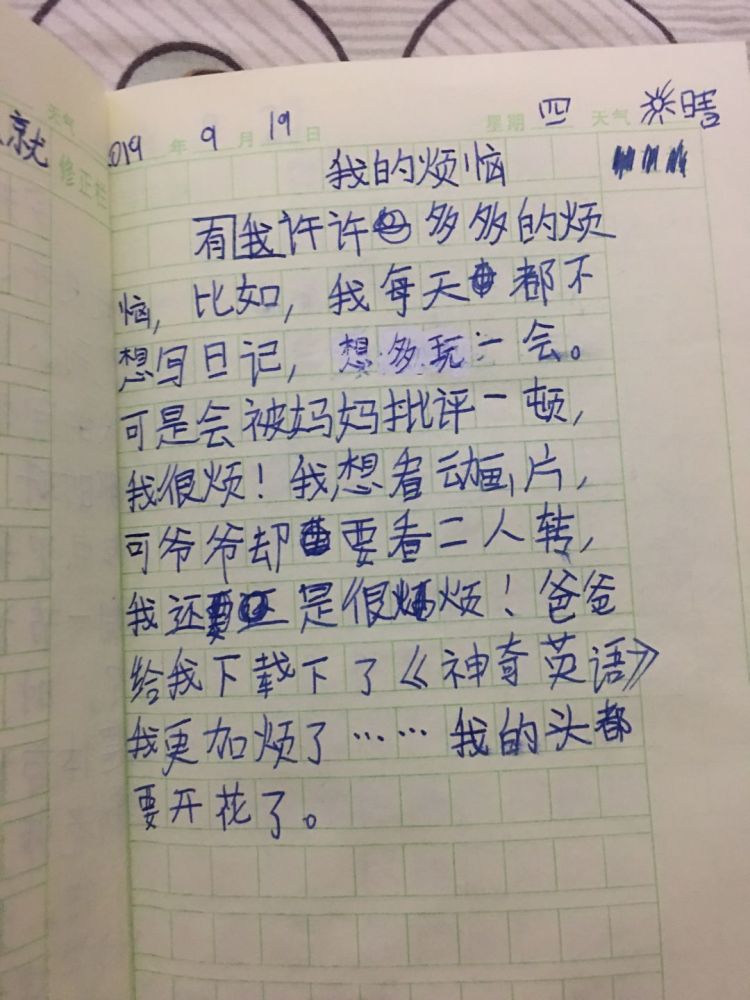 就
天气
修正栏
2019 年 9 月 19 日 星期 四 天气 晴
我的烦恼
有我许许多多的烦
恼，比如，我每天都不
想写日记，想多玩一会。
可是会被妈妈批评一顿，
我很烦！我想看动画片，
可爷爷却要看二人转，
我还是很烦！爸爸
给我下载下了《神奇英语》
我更加烦了……我的头都
要开花了。